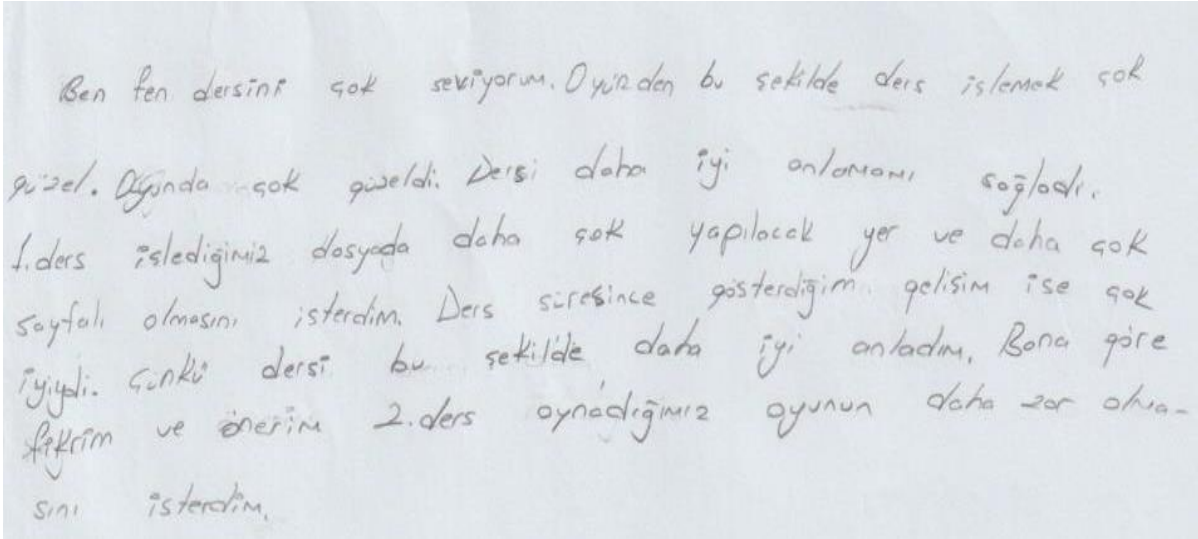 Ben fen dersini çok seviyorum. O yüzden bu şekilde ders işlemek çok
güzel. Oyunda çok güzeldi. Dersi daha iyi anlamamı sağladı.
1.ders işlediğimiz dosyada daha çok yapılacak yer ve daha çok
sayfalı olmasını isterdim. Ders süresince gösterdiğim gelişim ise çok
iyiydi. Çünkü dersi bu şekilde daha iyi anladım. Bana göre
fikrim ve önerim 2.ders oynadığımız oyunun daha zor olma-
sını isterdim.